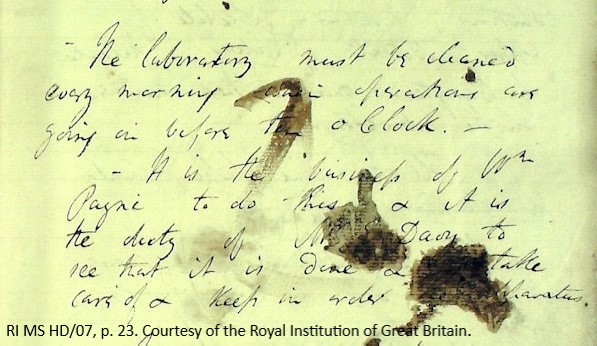 - The laboratory must be cleaned
every morning when operations are
going on before ten o Clock. -
- It is the business of Wm
Payne to do this & it is
the duty of Mr E Davy to
see that it is done & to take
care of & keep in order the apparatus.
RI MS HD/07, p. 23. Courtesy of the Royal Institution of Great Britain.